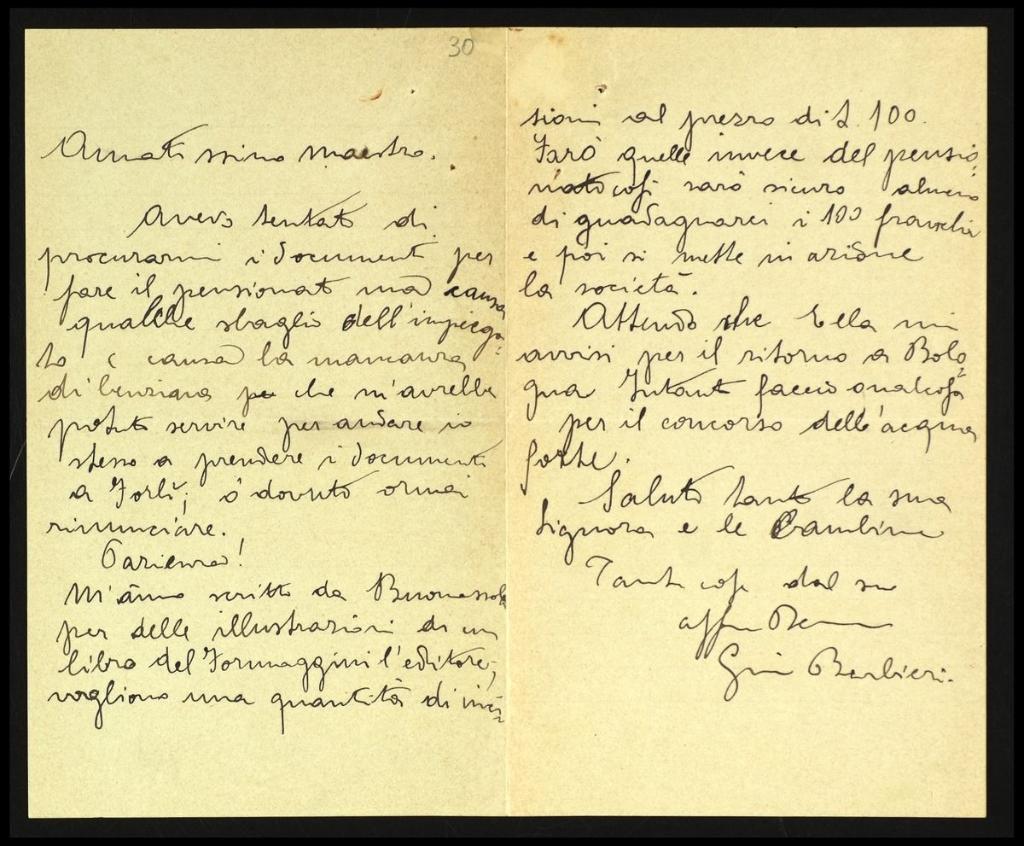 30
Amatissimo maestro.
Avevo tentato di
procurarmi i documenti per
fare il pensionato ma causa
qualche sbaglio dell'impiega=
to e causa la mancanza
di benzina che m'avrebbe
potuto servire per andare io
stesso a prendere i documenti
a Forlì; ò dovuto ormai
rinunciare.
Pazienza!
M'ànno scritto da
per delle illustrazioni di un
libro del Formaggini l'editore;
vogliono una quantità di inci=
sioni al prezzo di L. 100.
Farò quelle invece del pensio=
nato così sarò sicuro almeno
di guadagnarci i 100 franchi
e poi si mette in azione
la società.
Attendo che Ella mi
avvisi per il ritorno a Bolo=
gna Intanto faccio qualcosa
per il concorso dell'acqua
forte.
Saluto tanto la sua
Signora e le bambine
Tante cose dal suo
aff.mo
Gino Barbieri.